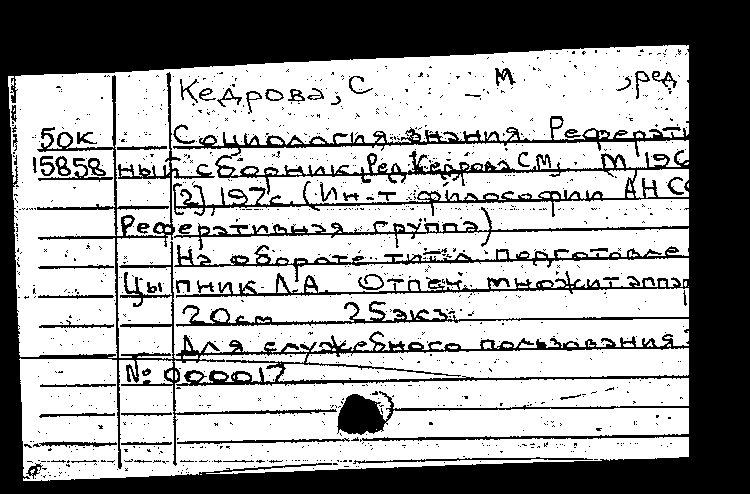 Кедрова, С М , ред.
50К Социология знания. Реферати
15858 ный сборник, Ред. Кедрова С.М. М, 196
[2], 197 с. (Ин-т философии АН СС
Реферативная группа)
На обороте титл. подготовле
Цыпник Л.А. Отпеч. множит аппар
20см 25экз.
Для служебного пользования
№ 000017